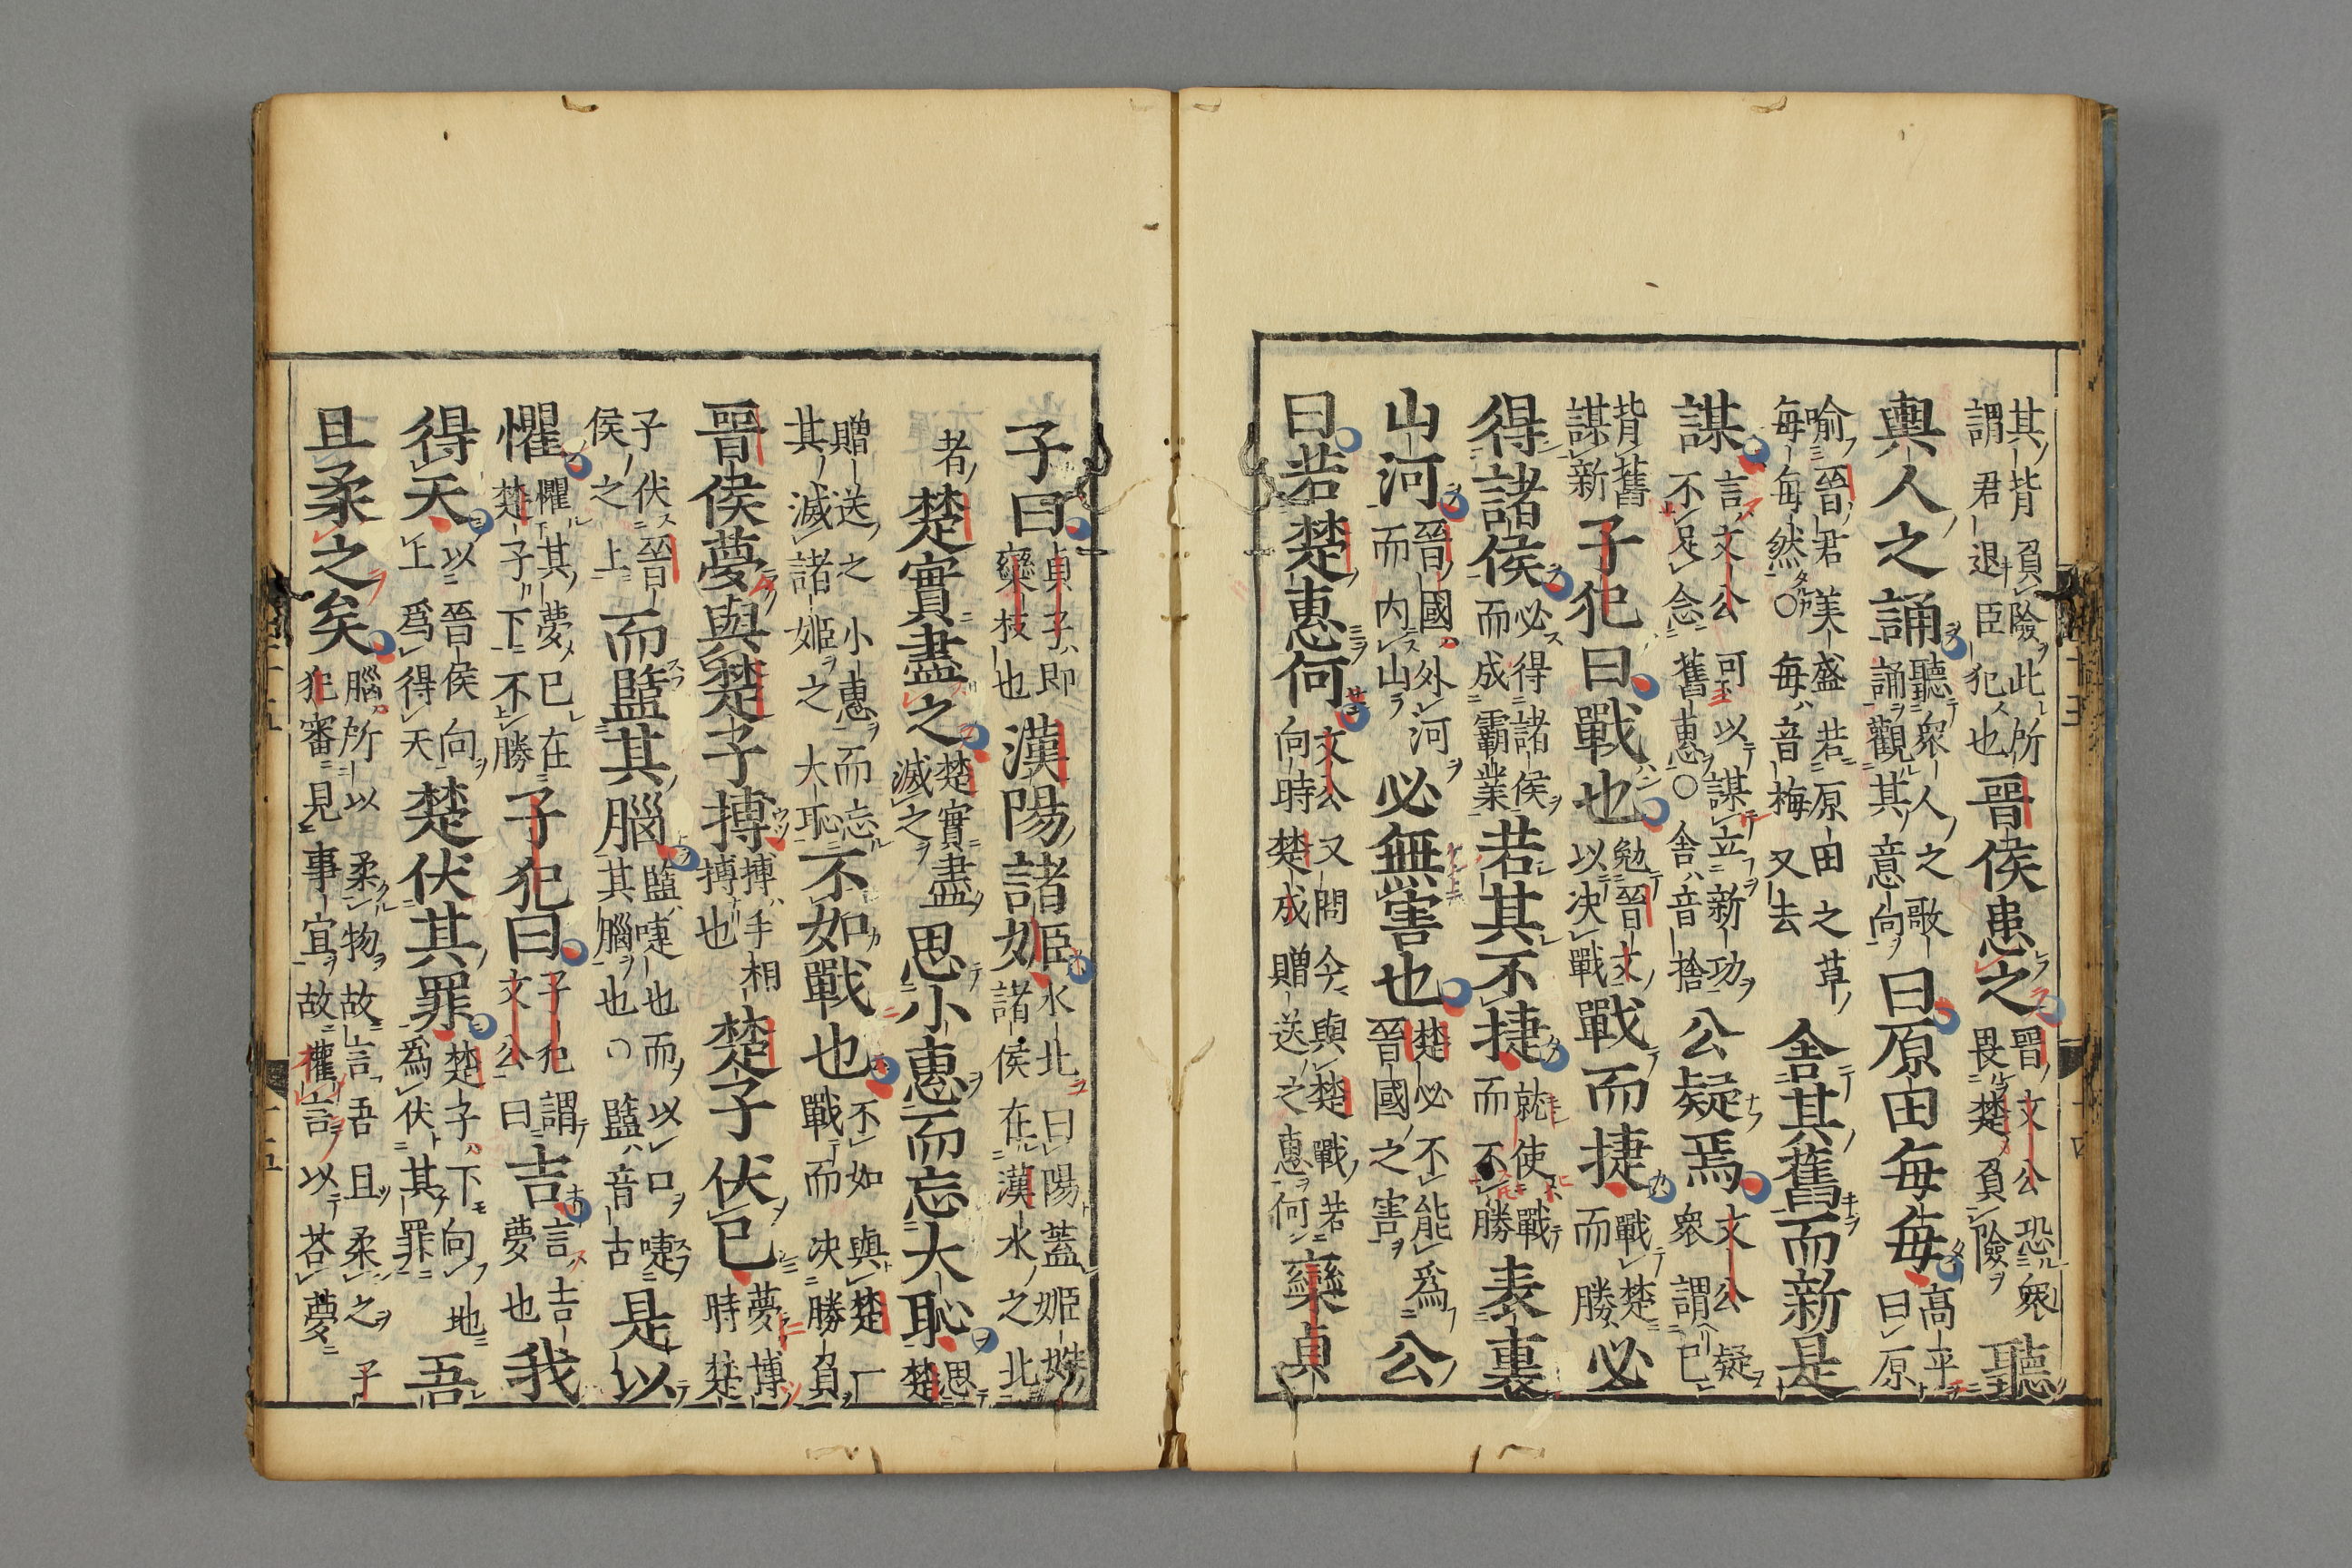 其背負險此所
謂君退臣犯也
晉侯患之
晉文公恐衆
畏楚負險
聽
輿人之誦
聽衆人之歌
誦觀其意向
曰原田每每
高平
曰原
喻晉君美盛若原田之草
每每然○每音梅又去
舍其舊而新是
謀
言文公可以謀立新功
不足念舊惠○舍音捨
公疑焉
文公疑
衆謂已
背舊
謀新
子犯曰戰也
勉晉文
以决戰
戰而捷
戰楚
而勝
必
得諸侯
必得諸侯
而成霸業
若其不捷
就使戰
而不勝
表裏
山河
晉國外河
而内山
必無害也
楚必不能爲
晉國之害
公
曰若楚惠何
文公又問今與楚戰若
向時楚成贈送之惠何
欒貞
子曰
貞子即
欒枝也
漢陽諸姬
水北曰陽蓋姬姓
諸侯在漢水之北
者
楚實盡之
楚實盡
滅之
思小惠而忘大恥
思
楚
贈送之小惠而忘
其滅諸姬之大恥
不如戰也
不如與楚一
戰而决勝負
晉侯夢與楚子搏
搏手相
搏也
楚子伏已
夢博
時楚
子伏晉
侯之上
而盬其腦
盬啑也而以口啑
其腦也○盬音古
是以
懼
懼其夢已在
楚子下不勝
子犯曰
子犯謂
文公曰
吉
言吉
夢也
我
得天
以晉侯向
上爲得天
楚伏其罪
楚子下向地
爲伏其罪
吾
且柔之矣
腦所以柔物故言吾且柔之子
犯審見事宜故權言以荅夢